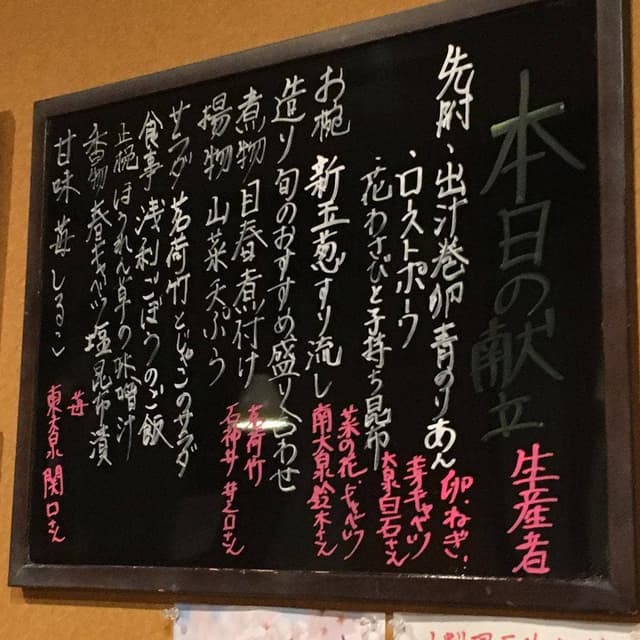 本日の献立
生産者
先附・出汁巻卵青のりあん
卵・ねぎ、
・ローストポーク
芽キャベツ
・花わさびと子持ち昆布
大泉白石さん
お椀 新玉葱すり流し
菜の花、キャベツ
南大泉鈴木さん
造り 旬のおすすめ盛り合わせ
煮物 目春煮付け
茗荷竹
揚物 山菜天ぷら
石神井 井之口さん
サラダ 茗荷竹とじゃこのサラダ
食事 浅利ごぼうのご飯
止椀 ほうれん草の味噌汁
香の物 春キャベツ塩昆布漬
苺
甘味 苺しるこ
東大泉 関口さん